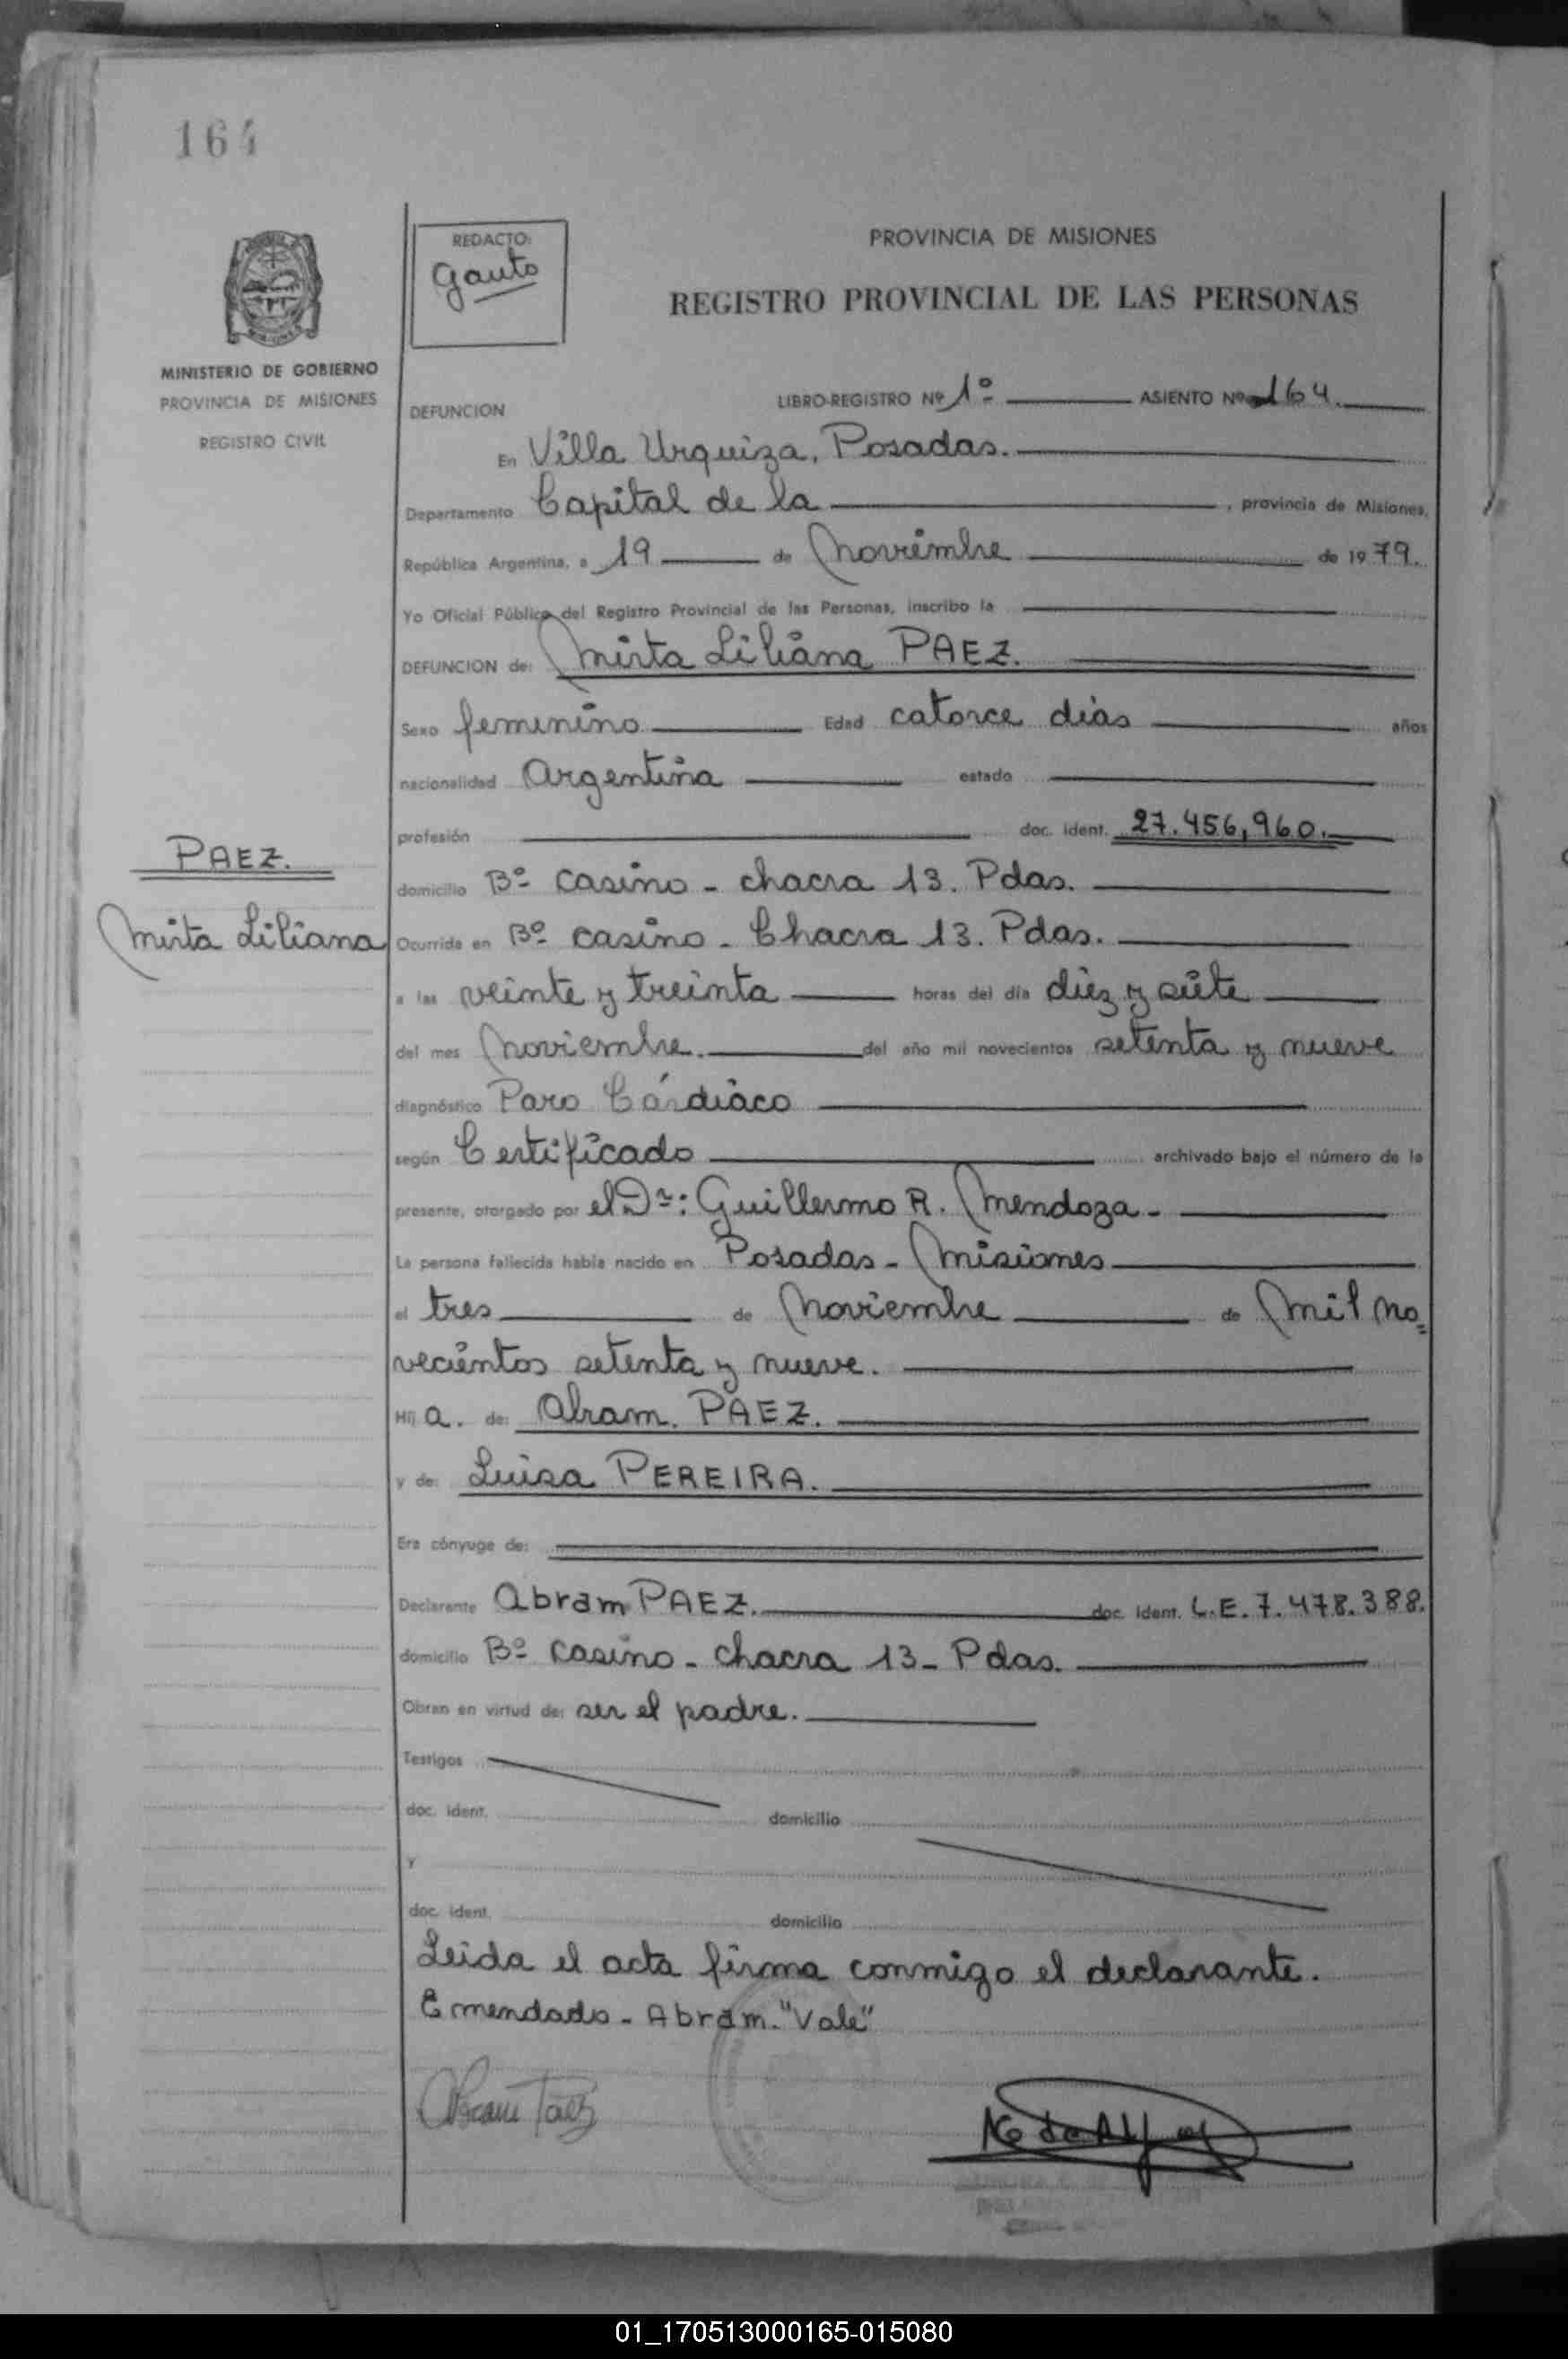 164
REDACTO:
Gauto
PROVINCIA DE MISIONES
REGISTRO PROVINCIAL DE LAS PERSONAS
MINISTERIO DE GOBIERNO
PROVINCIA DE MISIONES
REGISTRO CIVIL
DEFUNCION LIBRO-REGISTRO Nº 1º ASIENTO Nº 164.
En Villa Urquiza, Posadas.
Departamento Capital de la , provincia de Misiones,
República Argentina, a 19 de Noviembre de 1979.
Yo Oficial Público del Registro Provincial de las Personas, inscribo la
DEFUNCION de: Mirta Liliana PAEZ.
Sexo femenino Edad catorce días años
nacionalidad Argentina estado
profesión doc. ident. 27.456,960.
PAEZ.
Mirta Liliana
domicilio Bº Casino - chacra 13. Pdas.
Ocurrida en Bº Casino - Chacra 13. Pdas.
a las veinte y treinta horas del día diez y siete
del mes Noviembre. del año mil novecientos setenta y nueve
diagnóstico Paro Cárdiaco
según Certificado archivado bajo el número de la
presente, otorgado por el Dr: Guillermo R. Mendoza -
La persona fallecida había nacido en Posadas - Misiones
el tres de Noviembre de Mil no=
vecientos setenta y nueve.
Hij a. de: Abram. PAEZ.
y de: Luisa PEREIRA.
Era cónyuge de:
Declarante Abram PAEZ. doc. ident. L.E. 7.478.388.
domicilio Bº Casino - chacra 13 - Pdas.
Obran en virtud de: ser el padre.
Testigos
doc. ident. domicilio
y
doc. ident. domicilio
Leida el acta firma conmigo el declarante.
Emendado - Abram. "Vale"
Abram Paez
01_170513000165-015080